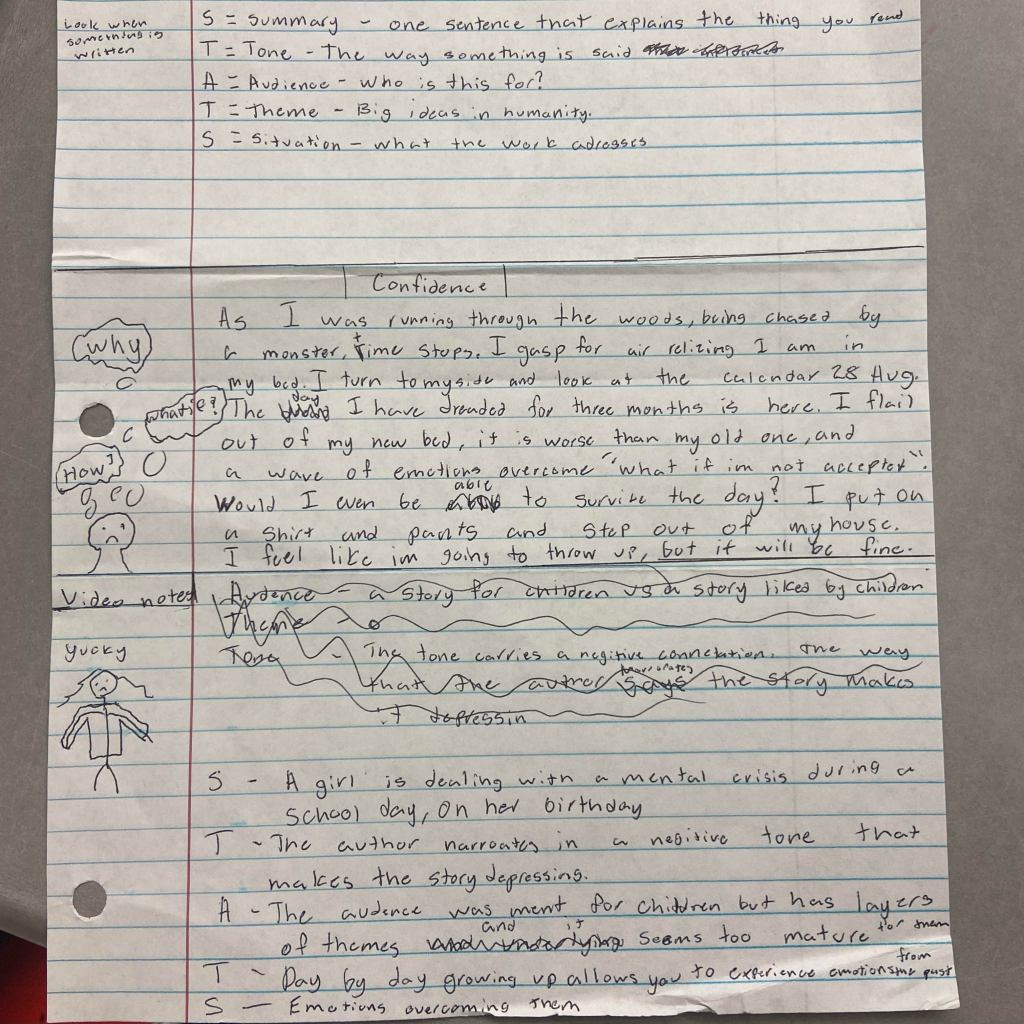 Look when
something is
written
S = Summary - one sentence that explains the thing you read
T = Tone - The way something is said
A = Audience - Who is this for?
T = Theme - Big ideas in humanity.
S = Situation - what the work adresses
Confidence
As I was running through the woods, being chased by
a monster, time stops. I gasp for air relizing I am in
my bed. I turn to my side and look at the calendar 28 Aug.
The day I have dreaded for three months is here. I flail
out of my new bed, it is worse than my old one, and
a wave of emotions overcome "what if im not accepted".
Would I even be able to survive the day? I put on
a shirt and pants and step out of my house.
I feel like im going to throw up, but it will be fine.
Why
what if?
How?
Video notes
yucky
Audence - a story for children vs a story liked by children
Theme -
Tone - The tone carries a negitive connetation. The way
that the author narrorates the story makes
it depressin
S - A girl is dealing with a mental crisis during a
school day, on her birthday
T - The author narroates in a negitive tone that
makes the story depressing.
A - The audence was ment for children but has layers
of themes and it seems too mature for them
T - Day by day growing up allows you to experience emotions from the past
S - Emotions overcoming them